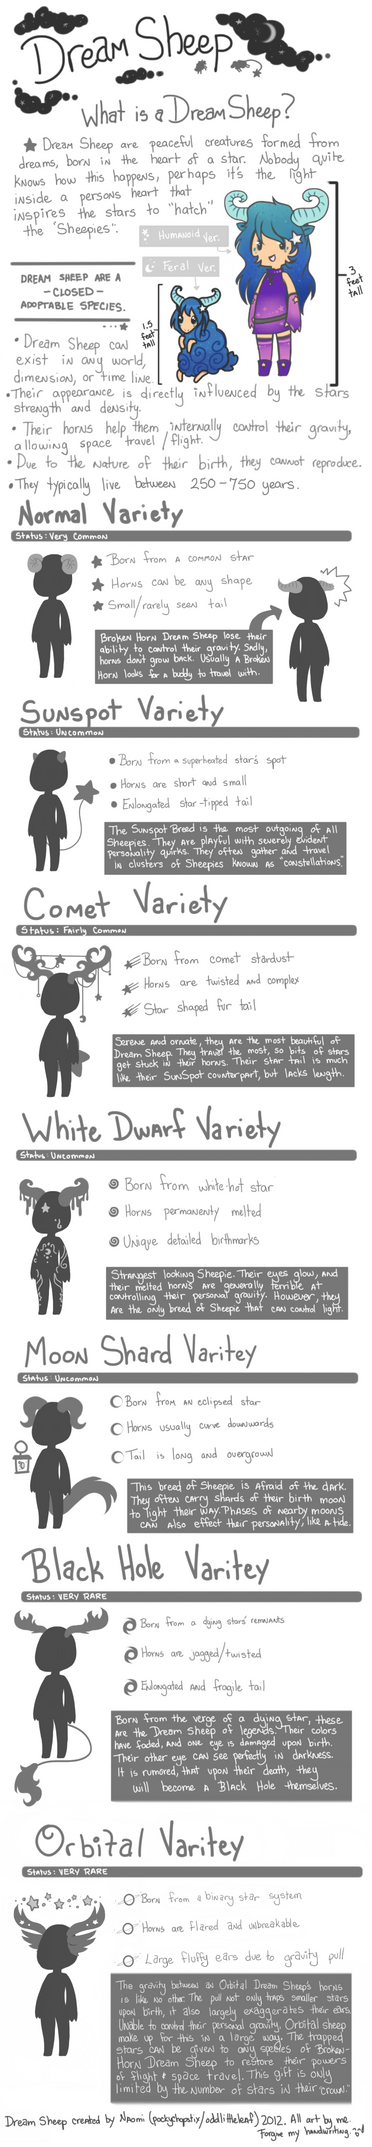 Dream Sheep
What is a Dream Sheep?
Dream Sheep are peaceful creatures formed from
dreams, born in the heart of a star. Nobody quite
knows how this happens, perhaps it's the light
inside a persons heart that
inspires the stars to "hatch"
the "Sheepies".
Humanoid Ver.
Feral Ver.
3 feet tall
1.5 feet tall
DREAM SHEEP ARE A
-CLOSED-
ADOPTABLE SPECIES.
• Dream Sheep can
exist in any world,
dimension, or time line.
• Their appearance is directly influenced by the stars
strength and density.
• Their horns help them internally control their gravity,
allowing space travel/flight.
• Due to the nature of their birth, they cannot reproduce.
• They typically live between 250-750 years.
Normal Variety
Status: Very Common
Born from a common star
Horns can be any shape
Small/rarely seen tail
Broken Horn Dream Sheep lose their
ability to control their gravity. Sadly,
horns don't grow back. Usually a Broken
Horn looks for a buddy to travel with.
Sunspot Variety
Status: Uncommon
• Born from a superheated star's spot
• Horns are short and small
• Enlongated star-tipped tail
The Sunspot Breed is the most outgoing of all
Sheepies. They are playful with severely evident
personality quirks. They often gather and travel
in clusters of Sheepies known as "constellations".
Comet Variety
Status: Fairly Common
Born from comet stardust
Horns are twisted and complex
Star shaped fur tail
Serene and ornate, they are the most beautiful of
Dream Sheep. They travel the most, so bits of stars
get stuck in their horns. Their star tail is much
like their SunSpot counterpart, but lacks length.
White Dwarf Variety
Status: Uncommon
Born from white-hot star
Horns permanenty melted
Unique detailed birthmarks
Strangest looking Sheepie. Their eyes glow, and
their melted horns are generally terrible at
controlling their personal gravity. However, they
are the only breed of Sheepie that can control light.
Moon Shard Varitey
Status: Uncommon
Born from an eclipsed star
Horns usually curve downwards
Tail is long and overgrown
This breed of Sheepie is afraid of the dark.
They often carry shards of their birth moon
to light their way. Phases of nearby moons
can also effect their personality, like a tide.
Black Hole Varitey
Status: VERY RARE
Born from a dying stars' remnants
Horns are jagged/twisted
Enlongated and fragile tail
Born from the verge of a dying star, these
are the Dream Sheep of legends. Their colors
have faded, and one eye is damaged upon birth.
Their other eye can see perfectly in darkness.
It is rumored, that upon their death, they
will become a Black Hole themselves.
Orbital Varitey
Status: VERY RARE
Born from a binary star system
Horns are flared and unbreakable
Large fluffy ears due to gravity pull
The gravity between an Orbital Dream Sheep's horns
is like no other. The pull not only traps smaller stars
upon birth, it also largely exaggerates their ears.
Unable to control their personal gravity, Orbital sheep
make up for this in a large way. The trapped
stars can be given to any species of Broken-
Horn Dream Sheep to restore their powers
of flight & space travel. This gift is only
limited by the number of stars in their "crown."
Dream Sheep created by Naomi (pockychopstix/oddlittleleaf) 2012. All art by me.
Forgive my handwriting.